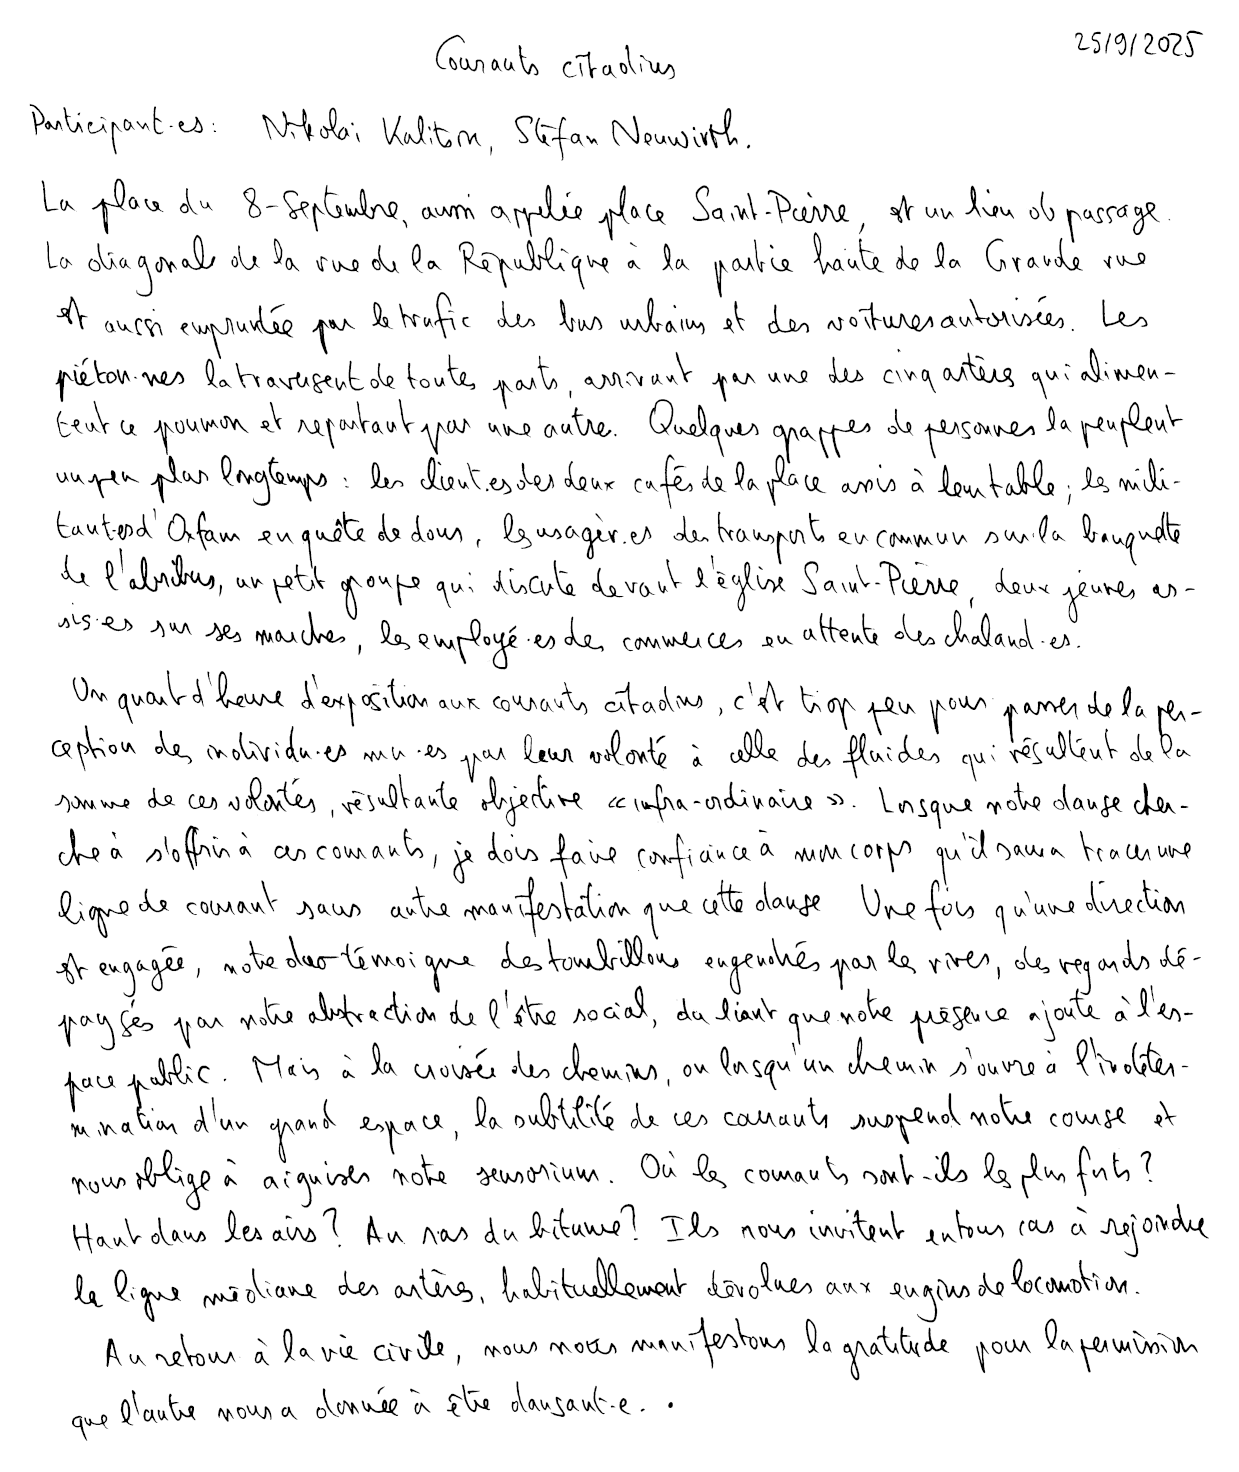 25/9/2025
Courants citadins
Participant·es : Nikolai Kaliton, Stefan Neuwirth.
La place du 8-Septembre, aussi appelée place Saint-Pierre, est un lieu de passage.
La diagonale de la rue de la République à la partie haute de la Grande rue
est aussi empruntée par le trafic des bus urbains et des voitures autorisées. Les
piéton·nes la traversent de toutes parts, arrivant par une des cinq artères qui alimen-
tent ce poumon et repartant par une autre. Quelques grappes de personnes la peuplent
un peu plus longtemps : les client·es des deux cafés de la place assis à leur table ; les mili-
tant·es d'Oxfam en quête de dons, les usagèr·es des transports en commun sur la banquette
de l'abribus, un petit groupe qui discute devant l'église Saint-Pierre, deux jeunes as-
sis·es sur ses marches, les employé·es des commerces en attente des chaland·es.
Un quart d'heure d'exposition aux courants citadins, c'est trop peu pour passer de la per-
ception des individu·es mu·es par leur volonté à celle des fluides qui résultent de la
somme de ces volontés, résultante objective « infra-ordinaire ». Lorsque notre danse cher-
che à s'offrir à ces courants, je dois faire confiance à mon corps qu'il saura tracer une
ligne de courant sans autre manifestation que cette danse Une fois qu'une direction
est engagée, notre duo témoigne des tourbillons engendrés par les rives, des regards dé-
paysés par notre abstraction de l'être social, du liant que notre présence ajoute à l'es-
pace public. Mais à la croisée des chemins, ou lorsqu'un chemin s'ouvre à l'indéter-
mination d'un grand espace, la subtilité de ces courants suspend notre course et
nous oblige à aiguiser notre sensorium. Où les courants sont-ils les plus forts ?
Haut dans les airs ? Au ras du bitume ? Ils nous invitent en tous cas à rejoindre
la ligne médiane des artères, habituellement dévolues aux engins de locomotion.
Au retour à la vie civile, nous nous manifestons la gratitude pour la permission
que l'autre nous a donnée à être dansant·e. .